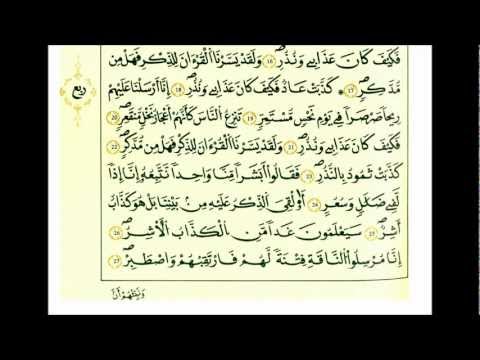 فَكَيْفَ كَانَ عَذَابِي وَنُذُرِ ١٦ وَلَقَدْ يَسَّرْنَا الْقُرْآنَ لِلذِّكْرِ فَهَلْ مِن
مُّدَّكِرٍ ١٧ كَذَّبَتْ عَادٌ فَكَيْفَ كَانَ عَذَابِي وَنُذُرِ ١٨ إِنَّا أَرْسَلْنَا عَلَيْهِمْ
رِيحًا صَرْصَرًا فِي يَوْمِ نَحْسٍ مُّسْتَمِرٍّ ١٩ تَنزِعُ النَّاسَ كَأَنَّهُمْ أَعْجَازُ نَخْلٍ مُّنقَعِرٍ ٢٠
فَكَيْفَ كَانَ عَذَابِي وَنُذُرِ ٢١ وَلَقَدْ يَسَّرْنَا الْقُرْآنَ لِلذِّكْرِ فَهَلْ مِن مُّدَّكِرٍ ٢٢
كَذَّبَتْ ثَمُودُ بِالنُّذُرِ ٢٣ فَقَالُوا أَبَشَرًا مِّنَّا وَاحِدًا نَّتَّبِعُهُ إِنَّا إِذًا
لَّفِي ضَلَالٍ وَسُعُرٍ ٢٤ أَؤُلْقِيَ الذِّكْرُ عَلَيْهِ مِن بَيْنِنَا بَلْ هُوَ كَذَّابٌ
أَشِرٌ ٢٥ سَيَعْلَمُونَ غَدًا مَّنِ الْكَذَّابُ الْأَشِرُ ٢٦
إِنَّا مُرْسِلُوا النَّاقَةِ فِتْنَةً لَّهُمْ فَارْتَقِبْهُمْ وَاصْطَبِرْ ٢٧
وَنَبِّئْهُمْ أَنَّ
ربع